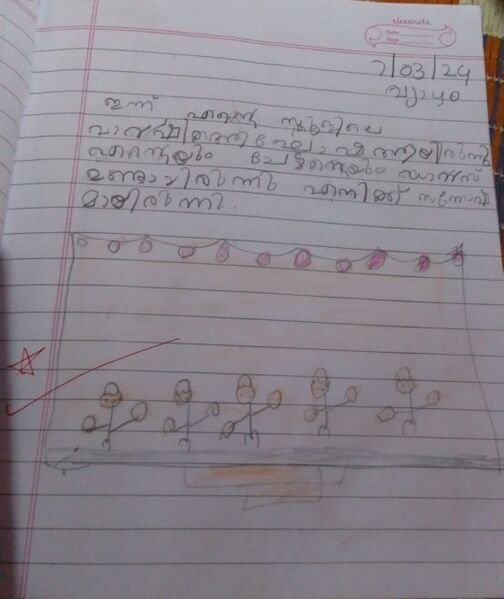 classmate
Date
Page
7/03/24
വ്യാഴം
ഇന്ന് എന്റെ സ്കൂളിലെ
വാർഷികാഘോഷമായിരുന്നു
എന്റെയും ചേച്ചിന്റെയും ഡാൻസ്
ഉണ്ടായിരുന്നു എനിക്ക് സന്തോഷ
മായിരുന്നു.